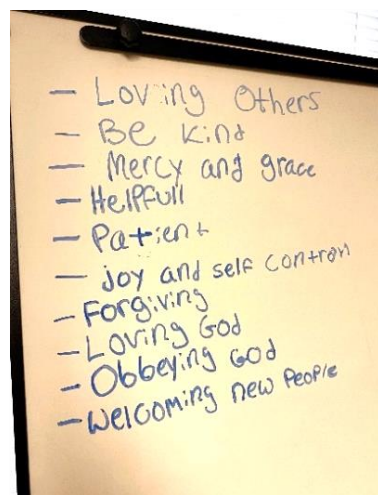 - Loving Others
- Be Kind
- Mercy and grace
- Helpfull
- Patient
- joy and self control
- Forgiving
- Loving God
- Obbeying God
- Welcoming new People